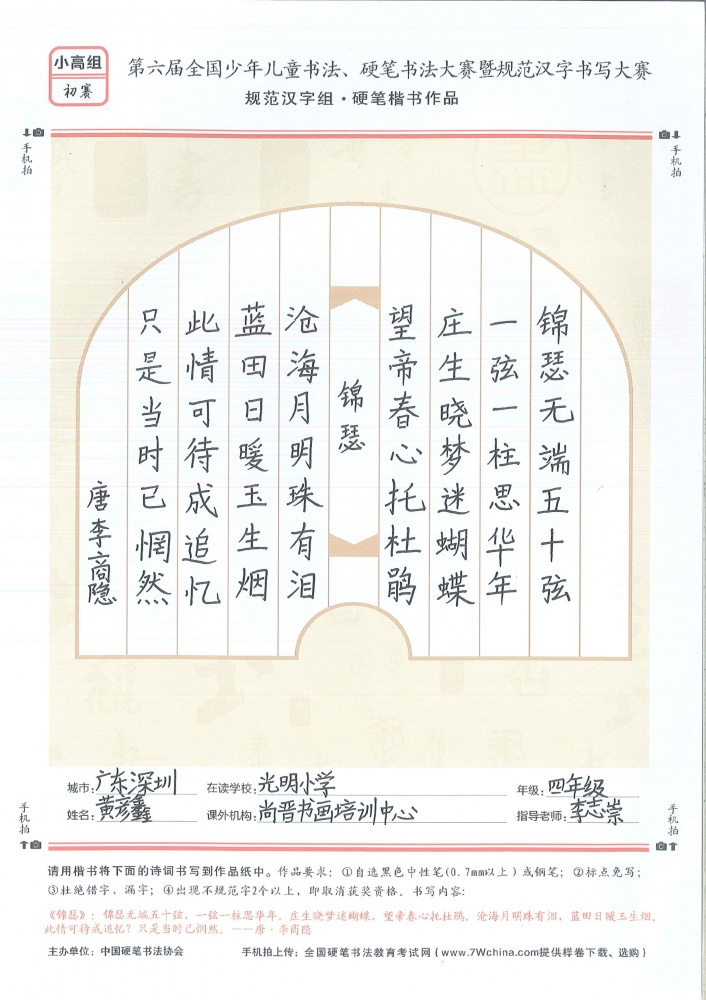 小高组
初赛
第六届全国少年儿童书法、硬笔书法大赛暨规范汉字书写大赛
规范汉字组·硬笔楷书作品
手机拍
手机拍
锦瑟无端五十弦
一弦一柱思华年
庄生晓梦迷蝴蝶
望帝春心托杜鹃
锦瑟
沧海月明珠有泪
蓝田日暖玉生烟
此情可待成追忆
只是当时已惘然
唐李商隐
城市:广东深圳 在读学校:光明小学 年级:四年级
姓名:黄彦鑫 课外机构:尚晋书画培训中心 指导老师:李志崇
手机拍
手机拍
请用楷书将下面的诗词书写到作品纸中。作品要求：①自选黑色中性笔(0.7mm以上)或钢笔；②标点免写；
③杜绝错字、漏字；④出现不规范字2个以上，即取消获奖资格。书写内容：
《锦瑟》：锦瑟无端五十弦，一弦一柱思华年。庄生晓梦迷蝴蝶，望帝春心托杜鹃。沧海月明珠有泪，蓝田日暖玉生烟。
此情可待成追忆？只是当时已惘然。——唐·李商隐
主办单位：中国硬笔书法协会 手机拍上传：全国硬笔书法教育考试网（www.7Wchina.com提供样卷下载、选购）